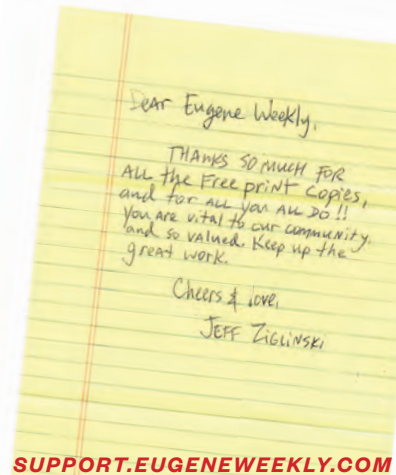 Dear Eugene Weekly,
THANKS SO MUCH FOR
ALL the Free print Copies,
and for ALL you ALL DO!!
You are vital to our community.
and so valued. Keep up the
great work.
Cheers & love,
JEFF ZIGLINSKI
SUPPORT.EUGENEWEEKLY.COM